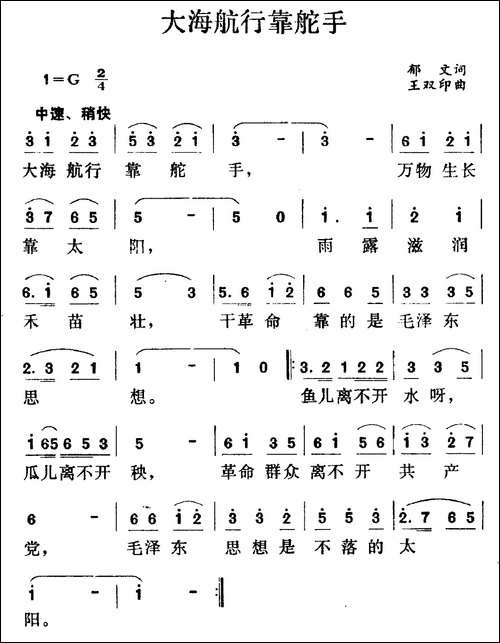 大海航行靠舵手
1=G 2/4
郁 文词
王双印曲
中速、稍快
3 1 2 3 | 5 3 2 1 | 3 - | 3 - | 6 1 2 1 |
大海 航行 靠 舵 手， 万物 生长
3 7 6 5 | 5 - | 5 0 | 1. 1 | 2 1 |
靠 太 阳， 雨 露 滋 润
6. 1 6 5 | 5 3 | 5. 6 1 2 | 6 6 5 | 3 3 3 5 |
禾 苗 壮， 干革 命 靠 的 是 毛泽 东
2. 3 2 1 | 1 - | 1 0 |: 3. 2 1 2 2 | 3 3 5 |
思 想。 鱼儿离不开 水 呀，
1 6 5 6 5 5 3 | 5 - | 6 1 3 5 | 6 1 5 6 | 1 3 2 7 |
瓜儿离不开 秧， 革命 群众 离不 开 共 产
6 - | 6 6 1 2 | 3 3 2 | 5 5 3 | 2. 7 6 5 |
党， 毛泽 东 思 想 是 不 落 的 太
1 - | 1 - :|
阳。